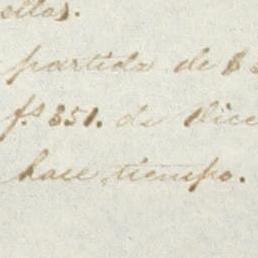 ellos.
partida de $
fs 351. de Dice
hace tiempo.